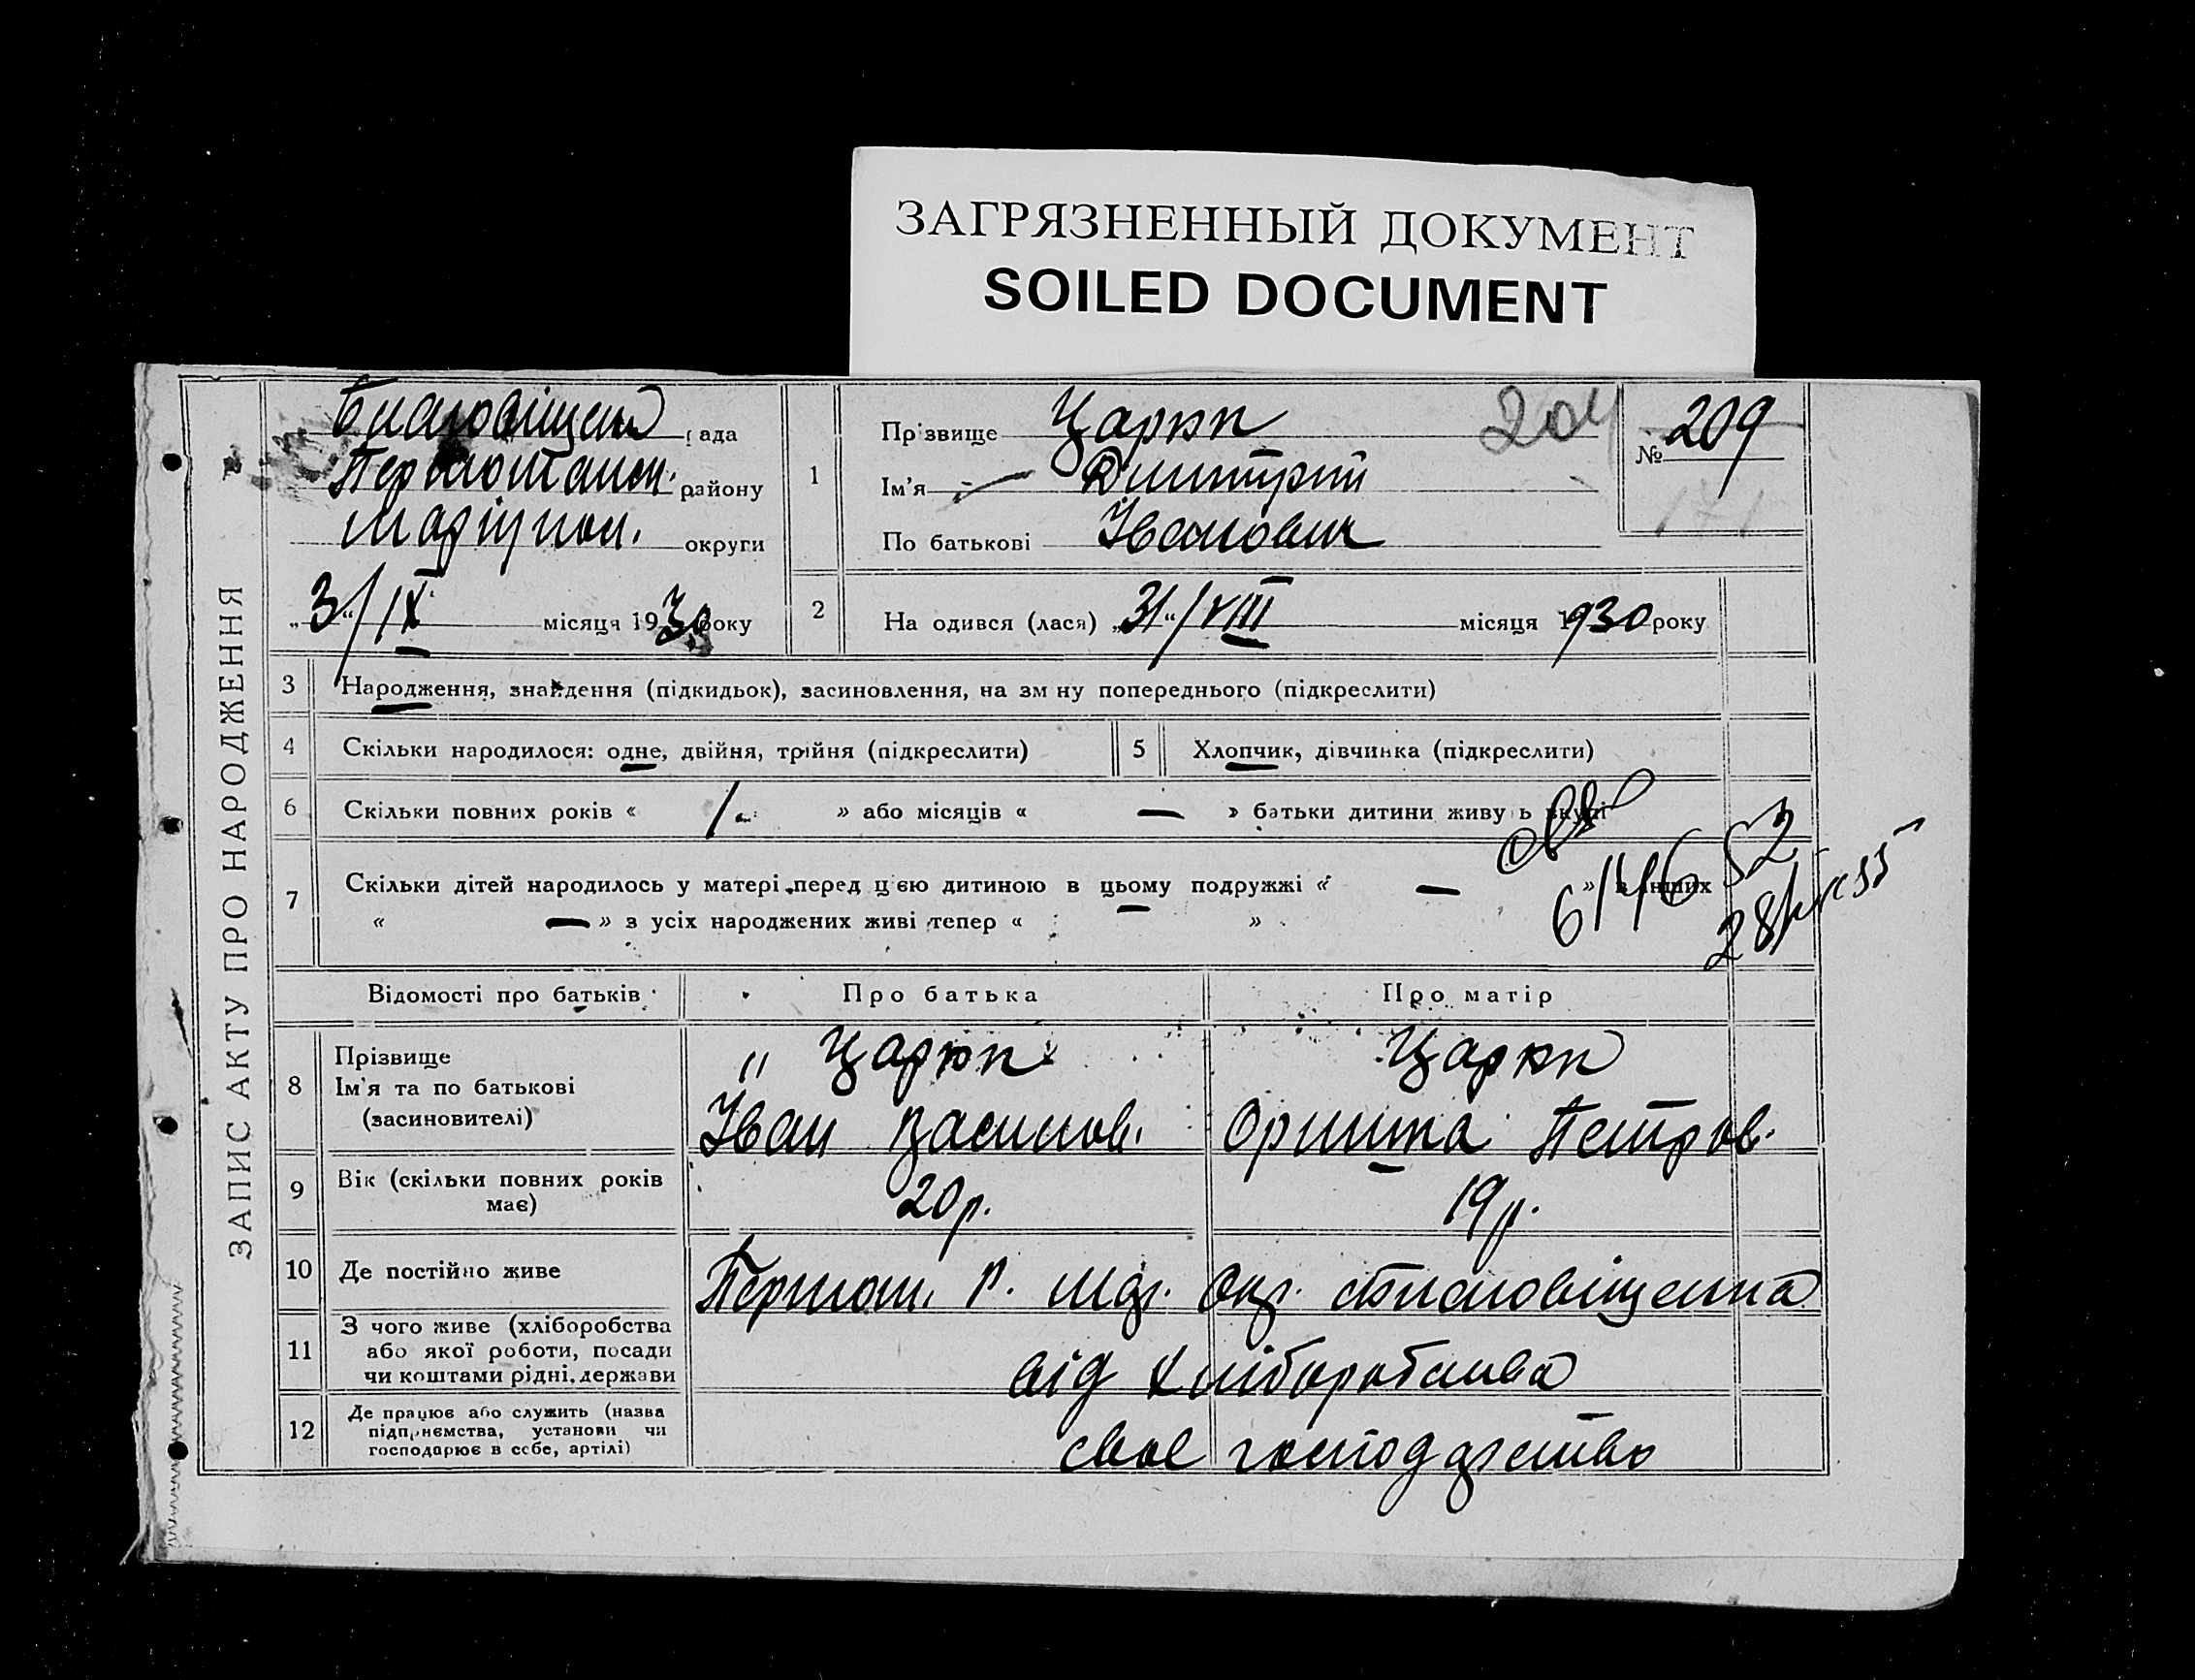 ЗАГРЯЗНЕННЫЙ ДОКУМЕНТ
SOILED DOCUMENT
ЗАПИС АКТУ ПРО НАРОДЖЕННЯ
рада
району
Маріупол. округи
„3“/IX місяця 1930 року
1
Прізвище Царюк
Ім'я Дмитрий
По батькові Іванович
204
№ 209
171
2 На одився (лася) „31“/VIII місяця 1930 року
3 Народження, знайдення (підкидьок), засиновлення, на зм ну попереднього (підкреслити)
4 Скільки народилося: одне, двійня, трійня (підкреслити)
5 Хлопчик, дівчинка (підкреслити)
6 Скільки повних років « 1 » або місяців « — » батьки дитини живу ь вкупі
7 Скільки дітей народилось у матері перед цією дитиною в цьому подружжі « — » в інших
« — » з усіх народжених живі тепер « »
52
Відомості про батьків Про батька Про матір
8 Прізвище
Ім'я та по батькові
(засиновителі)
" Царюк Царюк
Іван Васильов. Петров.
9 Вік (скільки повних років
має)
20р. 19р.
10 Де постійно живе
Р. Мар. Окр. Благовіщенка
11 З чого живе (хліборобства
або якої роботи, посади
чи коштами рідні, держави
від хліборобства
12 Де працює або служить (назва
підприємства, установи чи
господарює в себе, артілі)
своє господарство